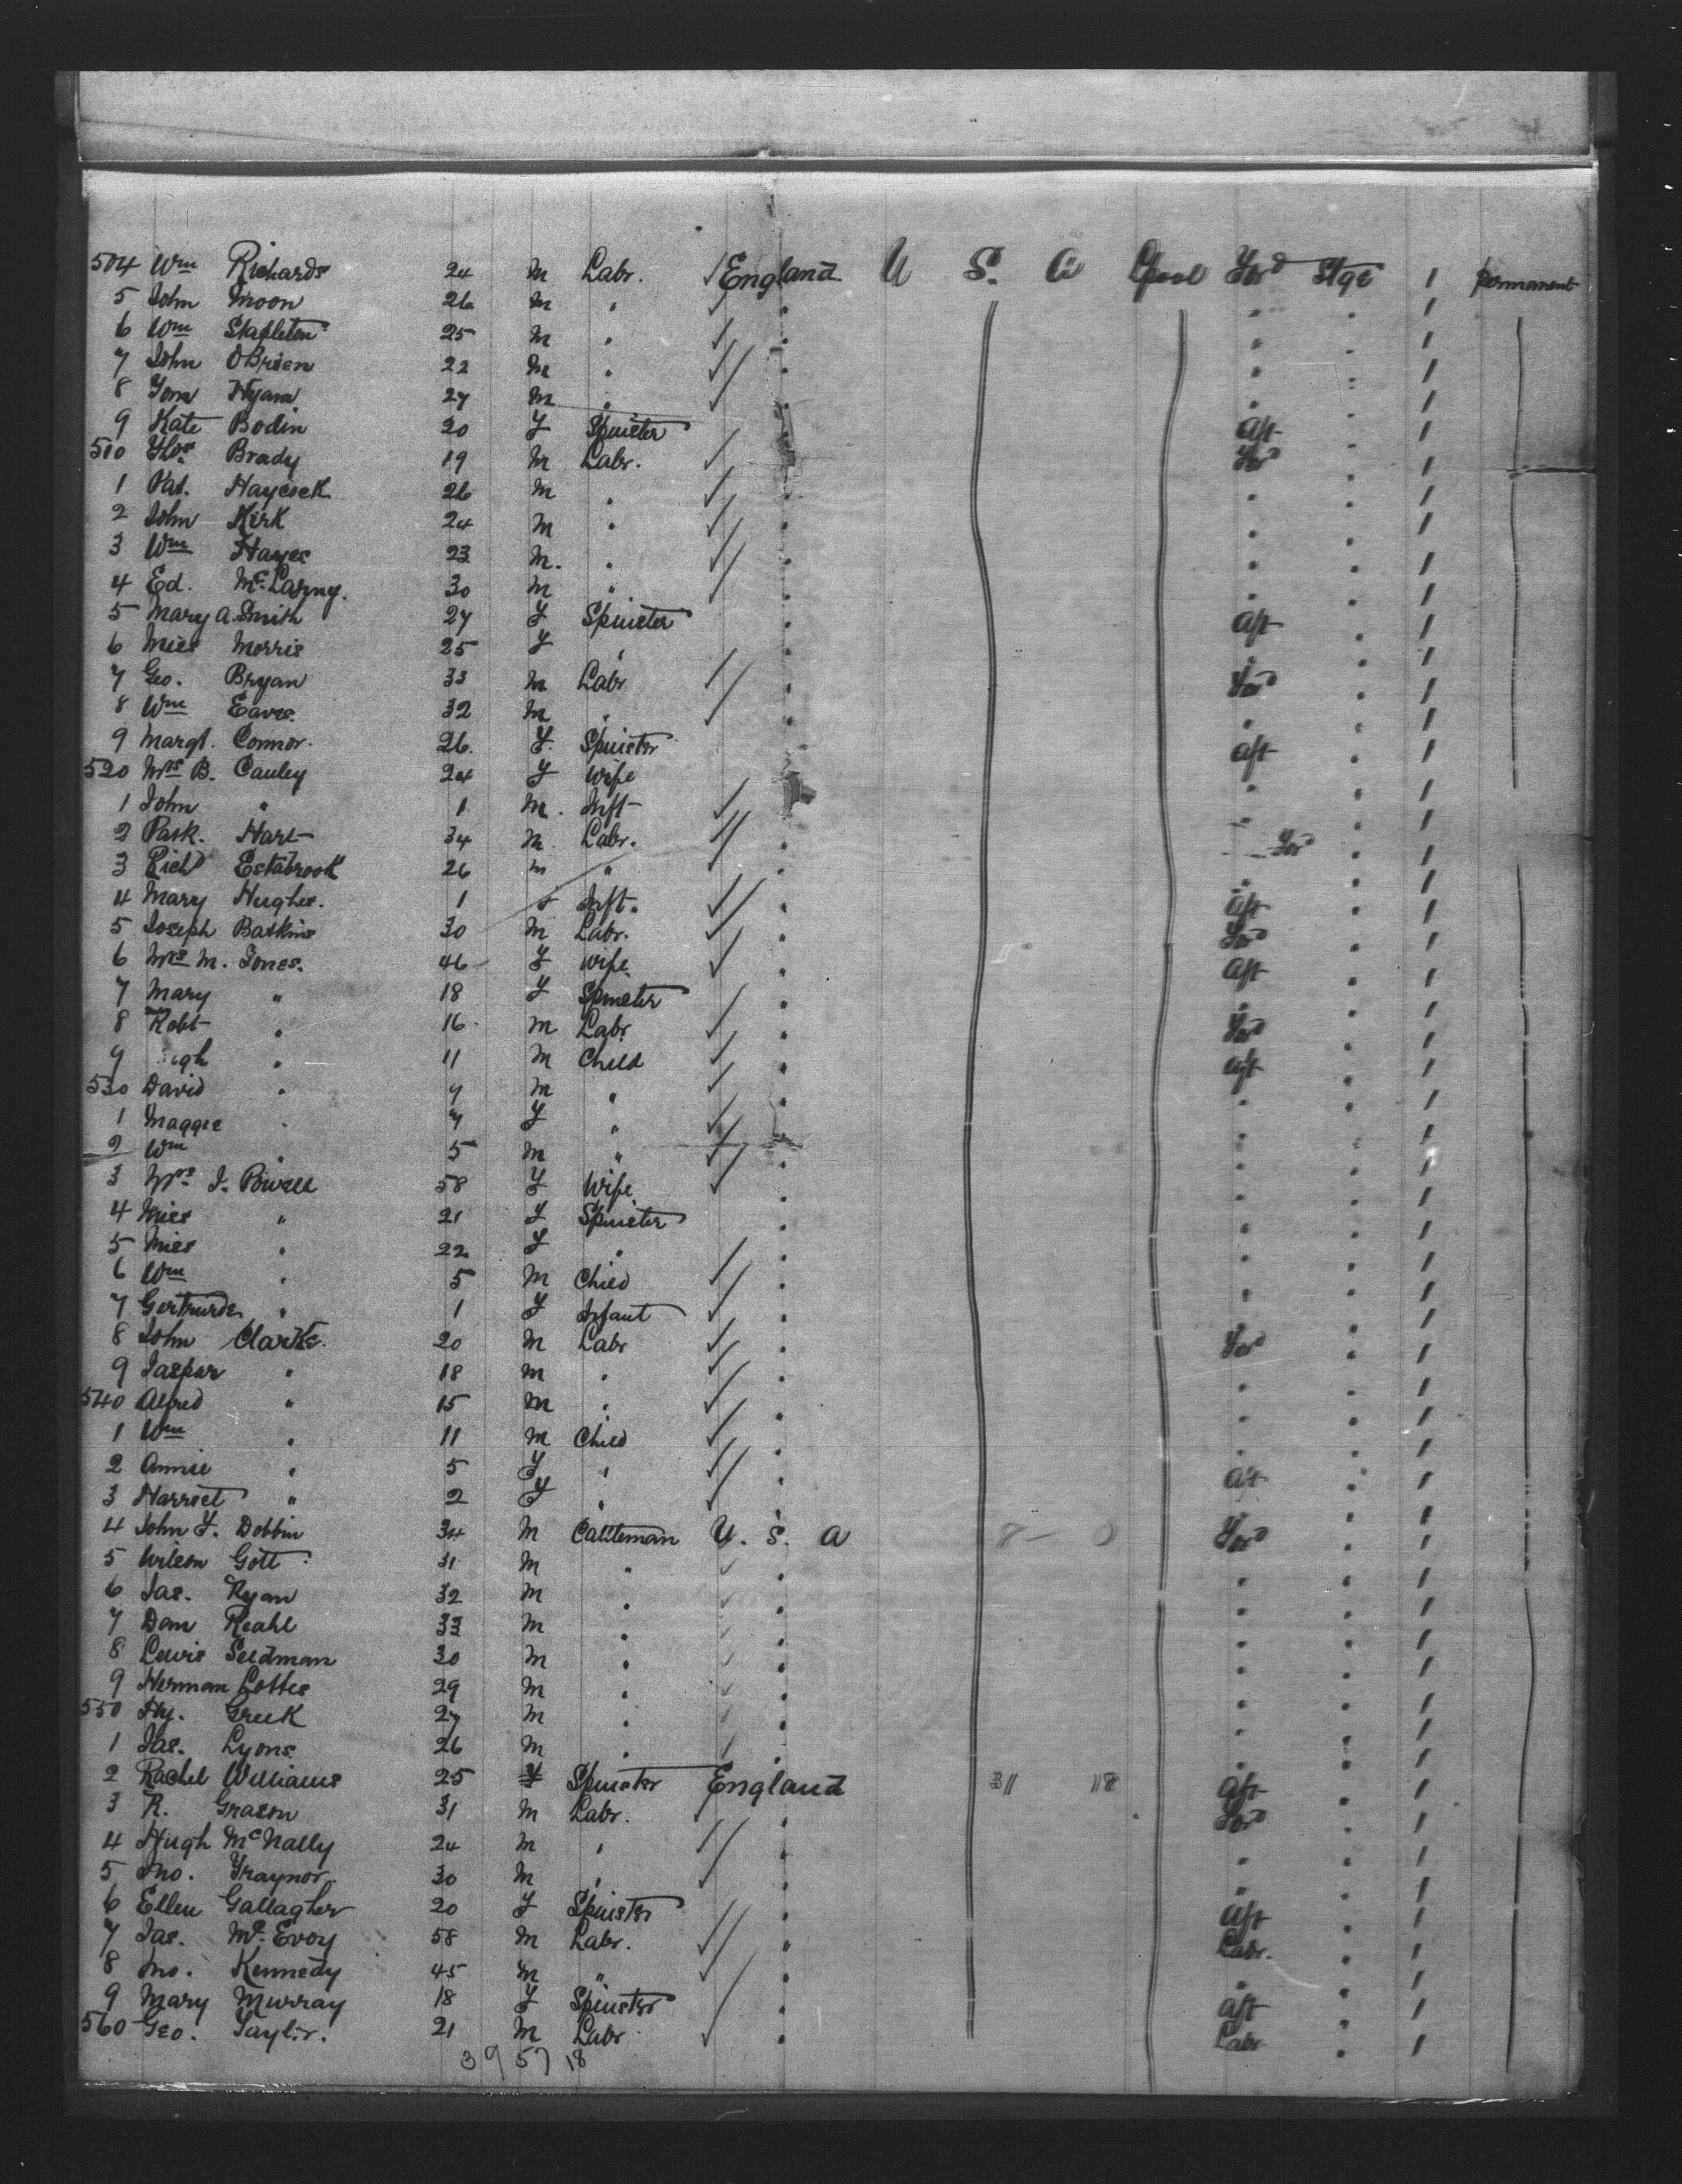 504 Wm Richards 24 m Labr. England U S. a Lpool For'd Stge 1 permanent
5 John Moon 26 m " " " " 1
6 Wm Stapleton 25 m " " " " 1
7 John OBrien 22 m " " " " 1
8 Tom Hyam 27 m " " " " 1
9 Kate Bodin 20 F Spinster " aft " 1
510 Thos Brady 19 m Labr. " For'd " 1
1 Pat. Haycock 26 m " " " " 1
2 John Kirk 24 m " " " " 1
3 Wm Hayes 23 m. " " " " 1
4 Ed. 30 m " " " " 1
5 Mary A. Smith 27 F Spinster " aft " 1
6 Miss Morris 25 F " " " " 1
7 Geo. Bryan 33 m Labr " For'd " 1
8 Wm Eaves. 32 m " " " " 1
9 Margt. Connor. 26. F Spinster " aft " 1
520 Mrs B. Cauley 24 F Wife " " " 1
1 John " 1 m. Inft " " " 1
2 Patk. Hart 34 m. Labr. " For'd " 1
3 Richd Estabrook 26 m " " " " 1
4 Mary Hughes. 1 F Inft. " aft " 1
5 Joseph Batkins 30 m Labr. " For'd " 1
6 Mrs M. Jones. 46 F Wife " aft " 1
7 Mary " 18 F Spinster " " " 1
8 Robt " 16 m Labr " For'd " 1
9 ugh " 11 m Child " aft " 1
530 David " 9 m " " " " 1
1 Maggie " 7 F " " " " 1
2 Wm " 5 m " " " " 1
3 Mrs J. Powell 58 F Wife " " " 1
4 Miss " 21 F Spinster " " " 1
5 Miss " 22 F " " " " 1
6 Wm " 5 m Child " " " 1
7 Gertrude " 1 F Infant " " " 1
8 John Clarke. 20 m Labr " For'd " 1
9 Jasper " 18 m " " " " 1
540 Alfred " 15 m " " " " 1
1 Wm " 11 m Child " " " 1
2 Annie " 5 F " " aft " 1
3 Harriet " 2 F " " " " 1
4 John F. Dobbin 34 m Cattleman U. S. a 8 — 0 For'd " 1
5 Wilson Gott 31 m " " " " 1
6 Jas. Ryan 32 m " " " " 1
7 Dan Reahl 33 m " " " " 1
8 Lewis Seidman 30 m " " " " 1
9 Herman Lottes 29 m " " " " 1
550 Hy. Greek 27 m " " " " 1
1 Jas. Lyons 26 m " " " " 1
2 Rachel Williams 25 F Spinster England 31 118 aft " 1
3 R. Grason 31 m Labr. " For'd " 1
4 Hugh McNally 24 m " " " " 1
5 Jno. Traynor. 30 m " " " " 1
6 Ellen Gallagher 20 F Spinster " aft " 1
7 Jas. McEvoy 58 m Labr. " Labr. " 1
8 Jno. Kennedy 45 m " " " " 1
9 Mary Murray 18 F Spinster " aft " 1
560 Geo. Taylor. 21 m Labr " Labr " 1
39 57 18